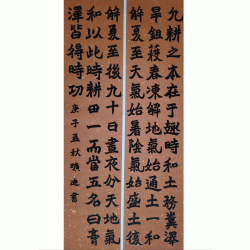 凡耕之本在于趣時和土務糞澤
旱鉏穫春凍解地氣始通土一和
解夏至天氣始暑陰氣始盛土復
解夏至後九十日晝夜分天地氣
和以此時耕田一而當五名曰膏
澤皆得時功 庚子孟秋 書